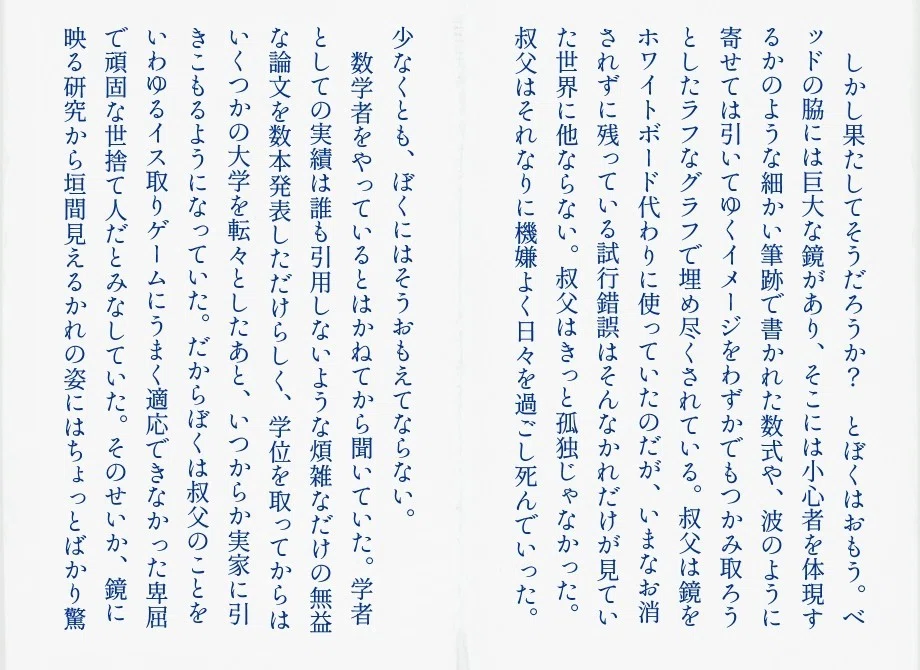 しかし果たしてそうだろうか？　とぼくはおもう。ベ
ッドの脇には巨大な鏡があり、そこには小心者を体現す
るかのような細かい筆跡で書かれた数式や、波のように
寄せては引いてゆくイメージをわずかでもつかみ取ろう
としたラフなグラフで埋め尽くされている。叔父は鏡を
ホワイトボード代わりに使っていたのだが、いまなお消
されずに残っている試行錯誤はそんなかれだけが見てい
た世界に他ならない。叔父はきっと孤独じゃなかった。
叔父はそれなりに機嫌よく日々を過ごし死んでいった。
少なくとも、ぼくにはそうおもえてならない。
　数学者をやっているとはかねてから聞いていた。学者
としての実績は誰も引用しないような煩雑なだけの無益
な論文を数本発表しただけらしく、学位を取ってからは
いくつかの大学を転々としたあと、いつからか実家に引
きこもるようになっていた。だからぼくは叔父のことを
いわゆるイス取りゲームにうまく適応できなかった卑屈
で頑固な世捨て人だとみなしていた。そのせいか、鏡に
映る研究から垣間見えるかれの姿にはちょっとばかり驚